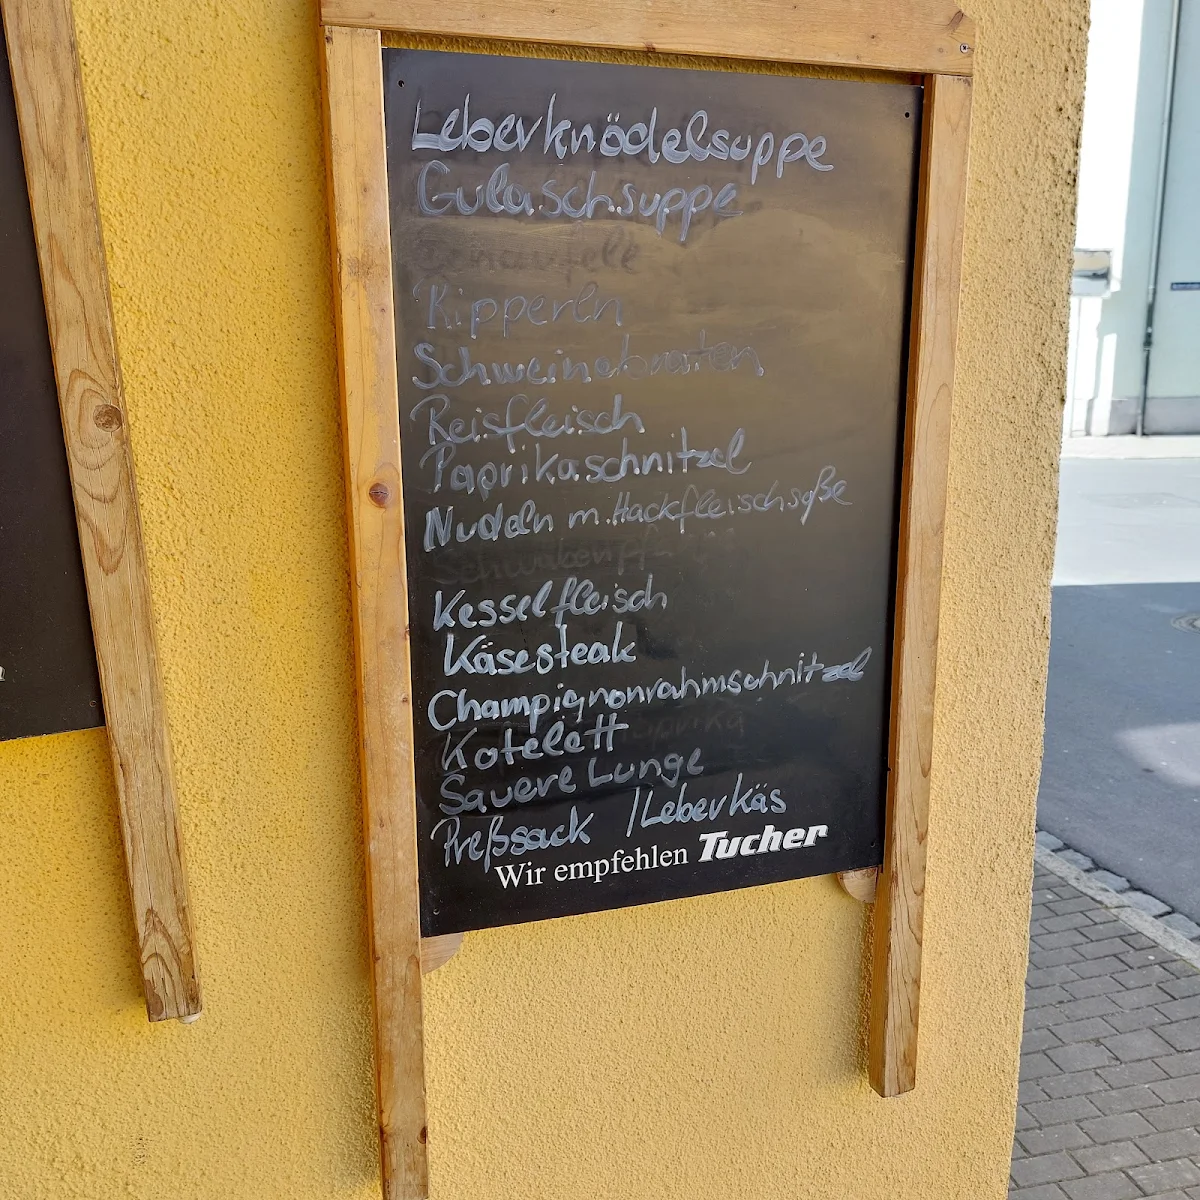 Leberknödelsuppe
Gulaschsuppe
Ripperln
Schweinebraten
Reisfleisch
Paprikaschnitzel
Nudeln m. Hackfleischsoße
Kesselfleisch
Käsesteak
Champignonrahmschnitzel
Kotelett
Sauere Lunge
Preßsack / Leberkäs
Wir empfehlen Tucher